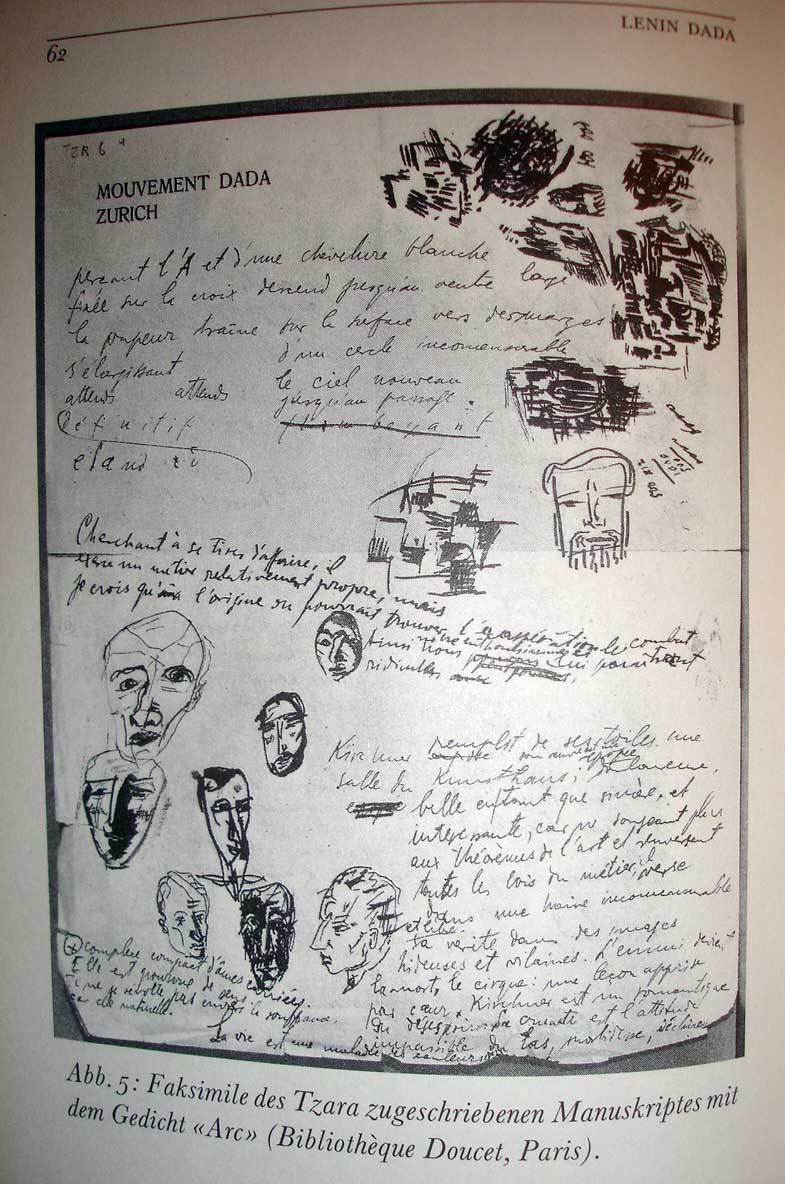 62
LENIN DADA
TZR 6 4
MOUVEMENT DADA
ZURICH
perçant l'A et d'une chevelure blanche
fixée sur la croix descend jusqu'au ventre large
la vapeur traîne sur la surface vers des marges
s'élargissant d'un cercle incomensurable
attends attends le ciel nouveau
jusqu'au passage
définitif
étand
Cherchant à se tirer d'affaire, il
exerce un métier relativement propre, mais
je crois qu'à l'origine on pourrait trouver l' le combat
Ainsi nous qui paraîtront
ridicules
Kirchner remplit de ses toiles une
salle du Kunsthaus;
belle enfant que sincère, et
intéressante, car ne songeant plus
aux théorèmes de l'art et renversant
toutes les lois du métier, il verse
dans une haine incomensurable
sa vérité dans des images
hideuses et vilaines. L'ennui devient
la mort, le cirque: une leçon apprise
par cœur. Kirchner est un romantique
du désespoir. est l'attitude
impassible du
complexe compact d'âmes
Elle est de sens
il ne se révolte pas
car elle naturelle.
La vie est une maladie
Abb. 5: Faksimile des Tzara zugeschriebenen Manuskriptes mit
dem Gedicht «Arc» (Bibliothèque Doucet, Paris).